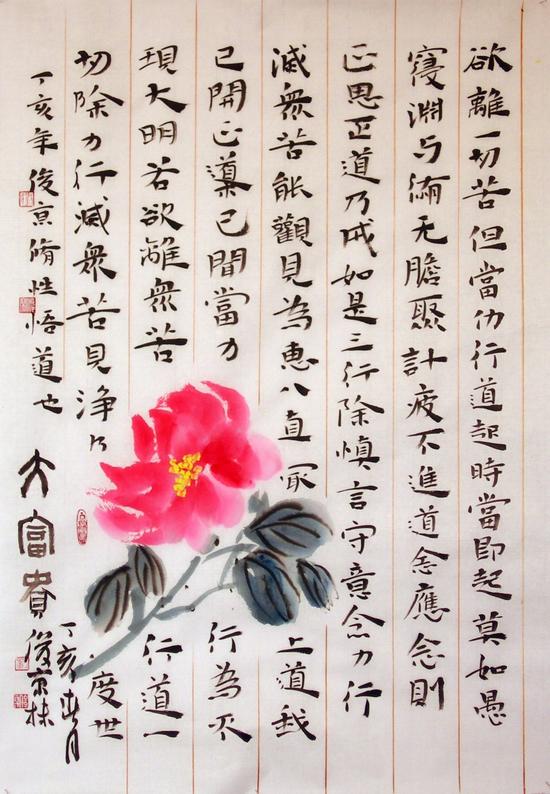 欲離一切苦但當仂行道起時當即起莫如愚
寢淵与綳无瞻聚計疲不進道念應念則
正思正道乃成如是三行除慎言守意念力行
滅衆苦能觀見為惠八直冡上道我
已開正已間當力行為不
現大明若欲離衆苦行道一
切除力行滅衆苦見淨乃度世
丁亥年俊京脩性悟道也
丁亥春月
大富貴俊京林